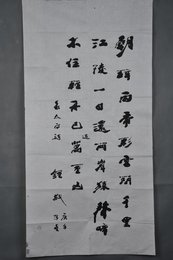 朝辭白帝彩雲間千里
江陵一日還兩岸猿聲啼
不住輕舟已過萬重山
太白詩